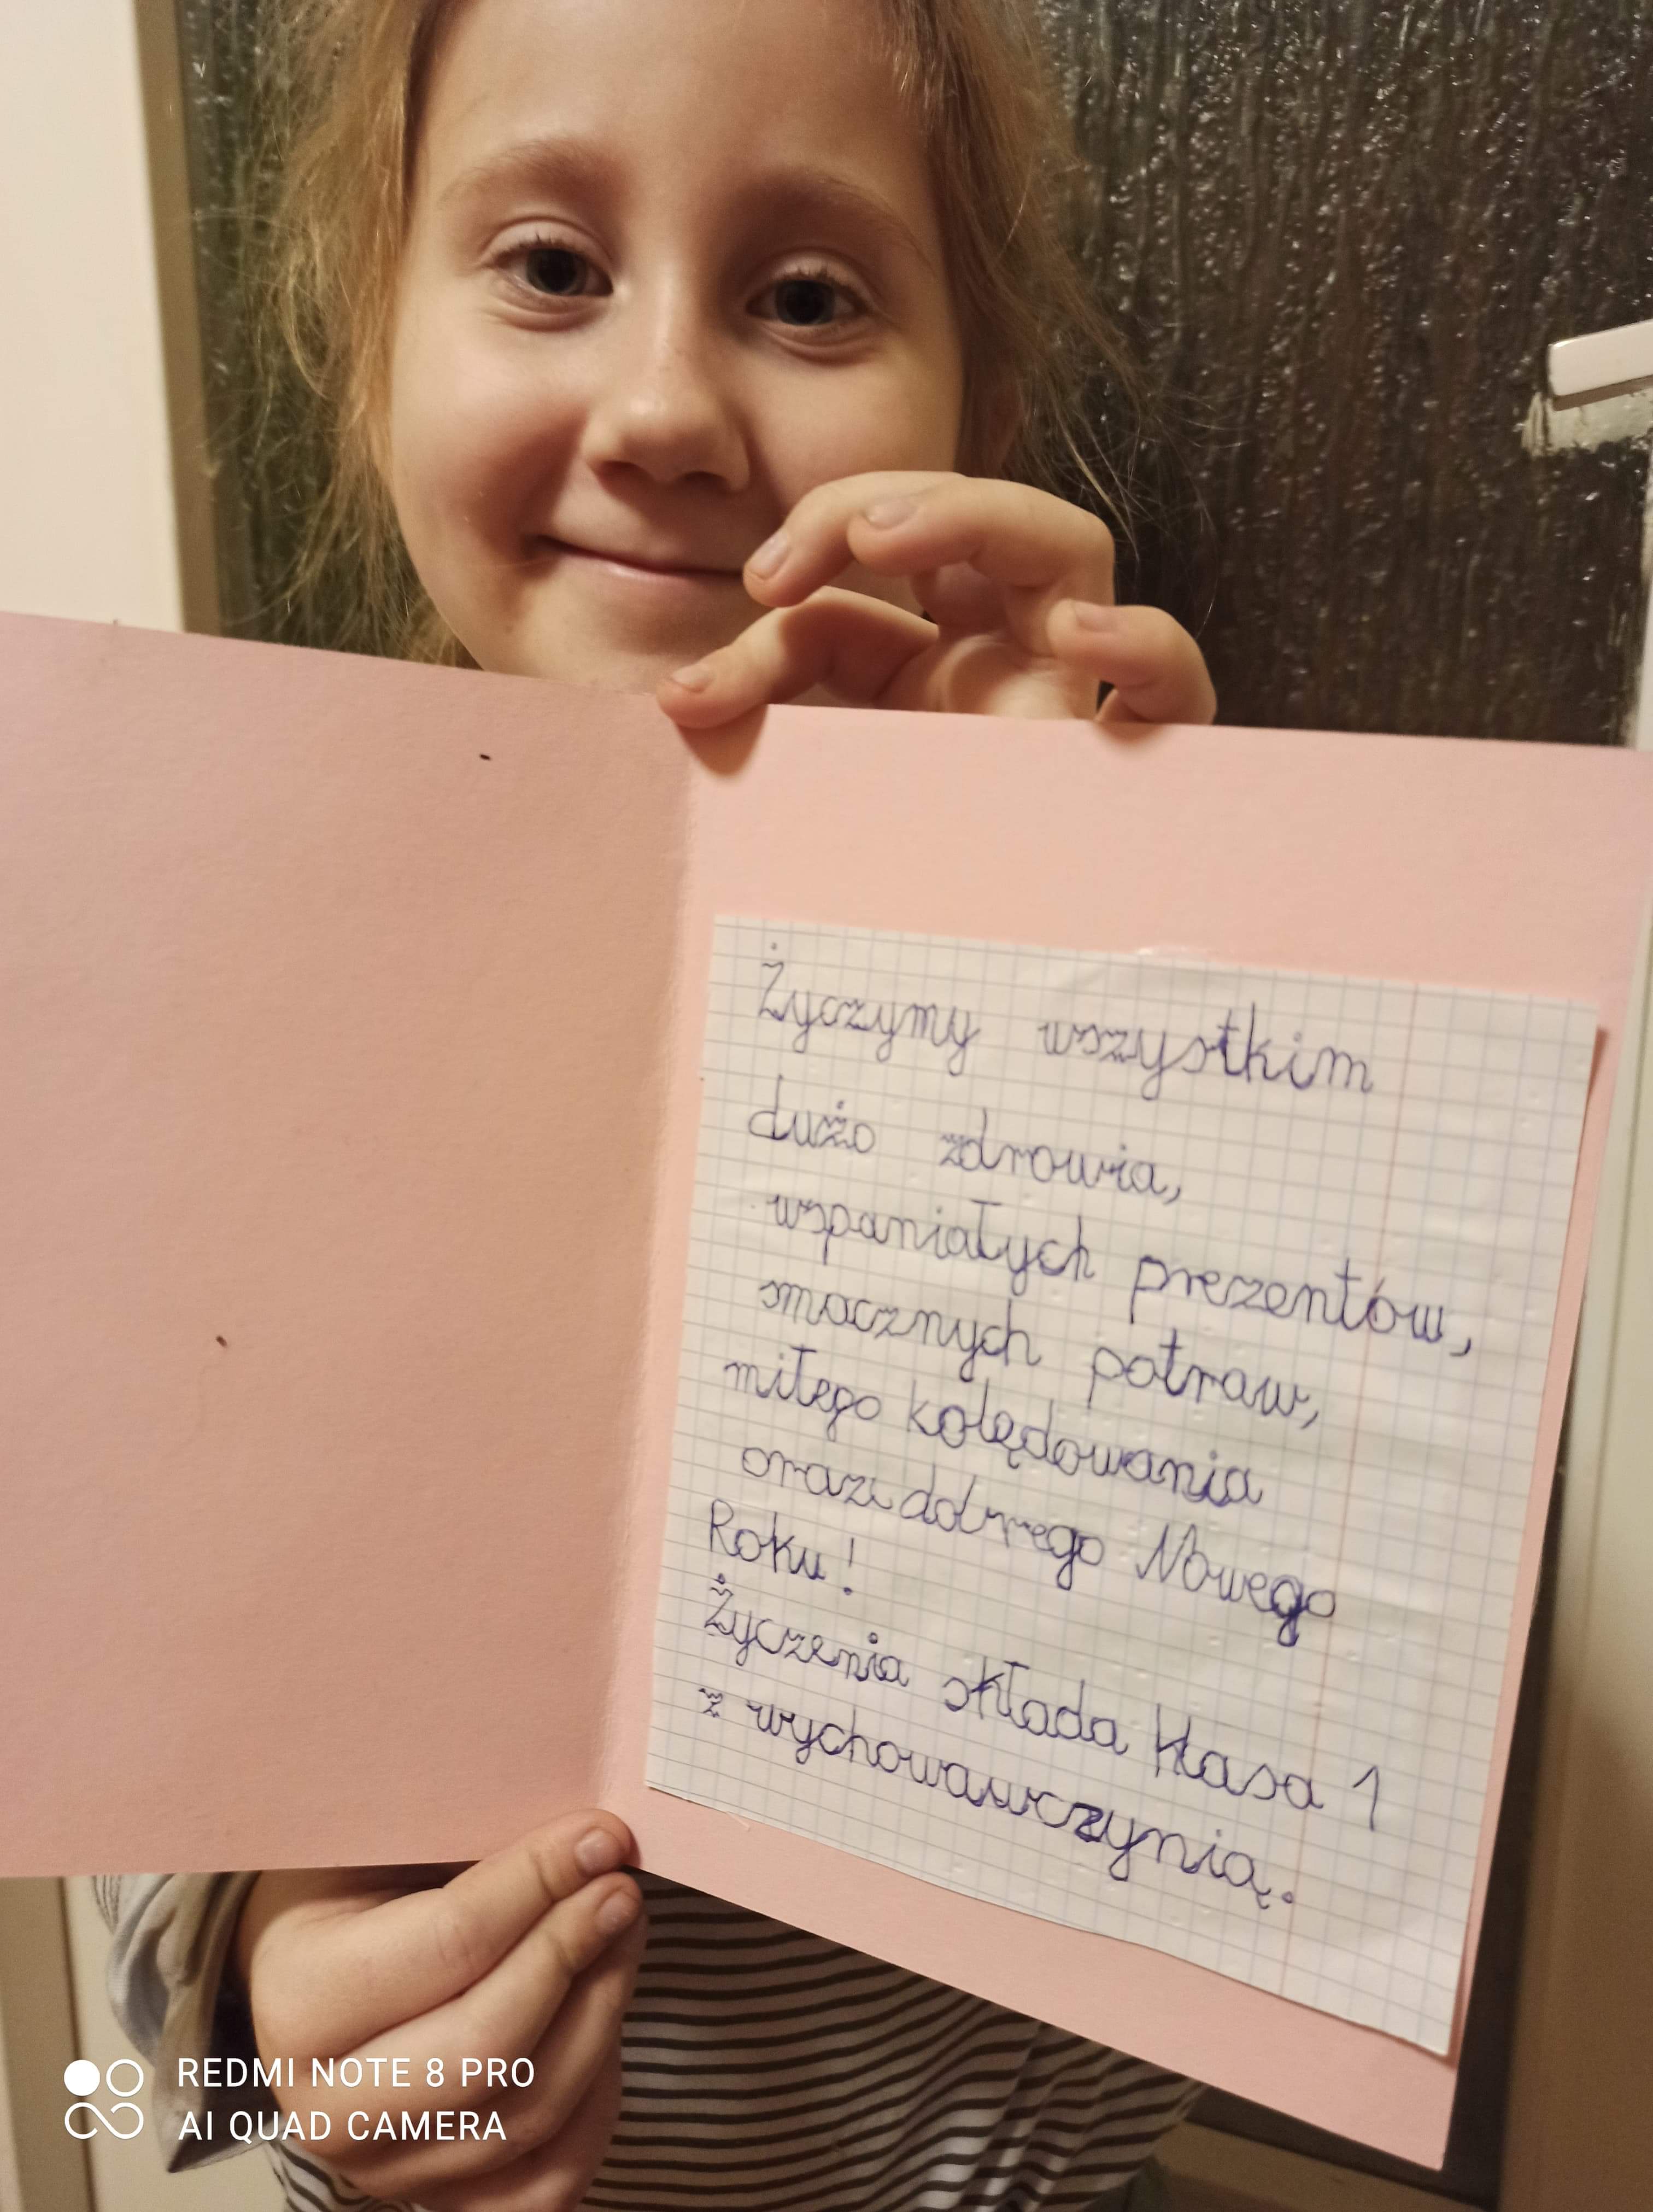 Życzymy wszystkim
dużo zdrowia,
wspaniałych prezentów,
smacznych potraw,
miłego kolędowania
oraz dobrego Nowego
Roku!
Życzenia składa klasa 1
z wychowawczynią.
REDMI NOTE 8 PRO
AI QUAD CAMERA